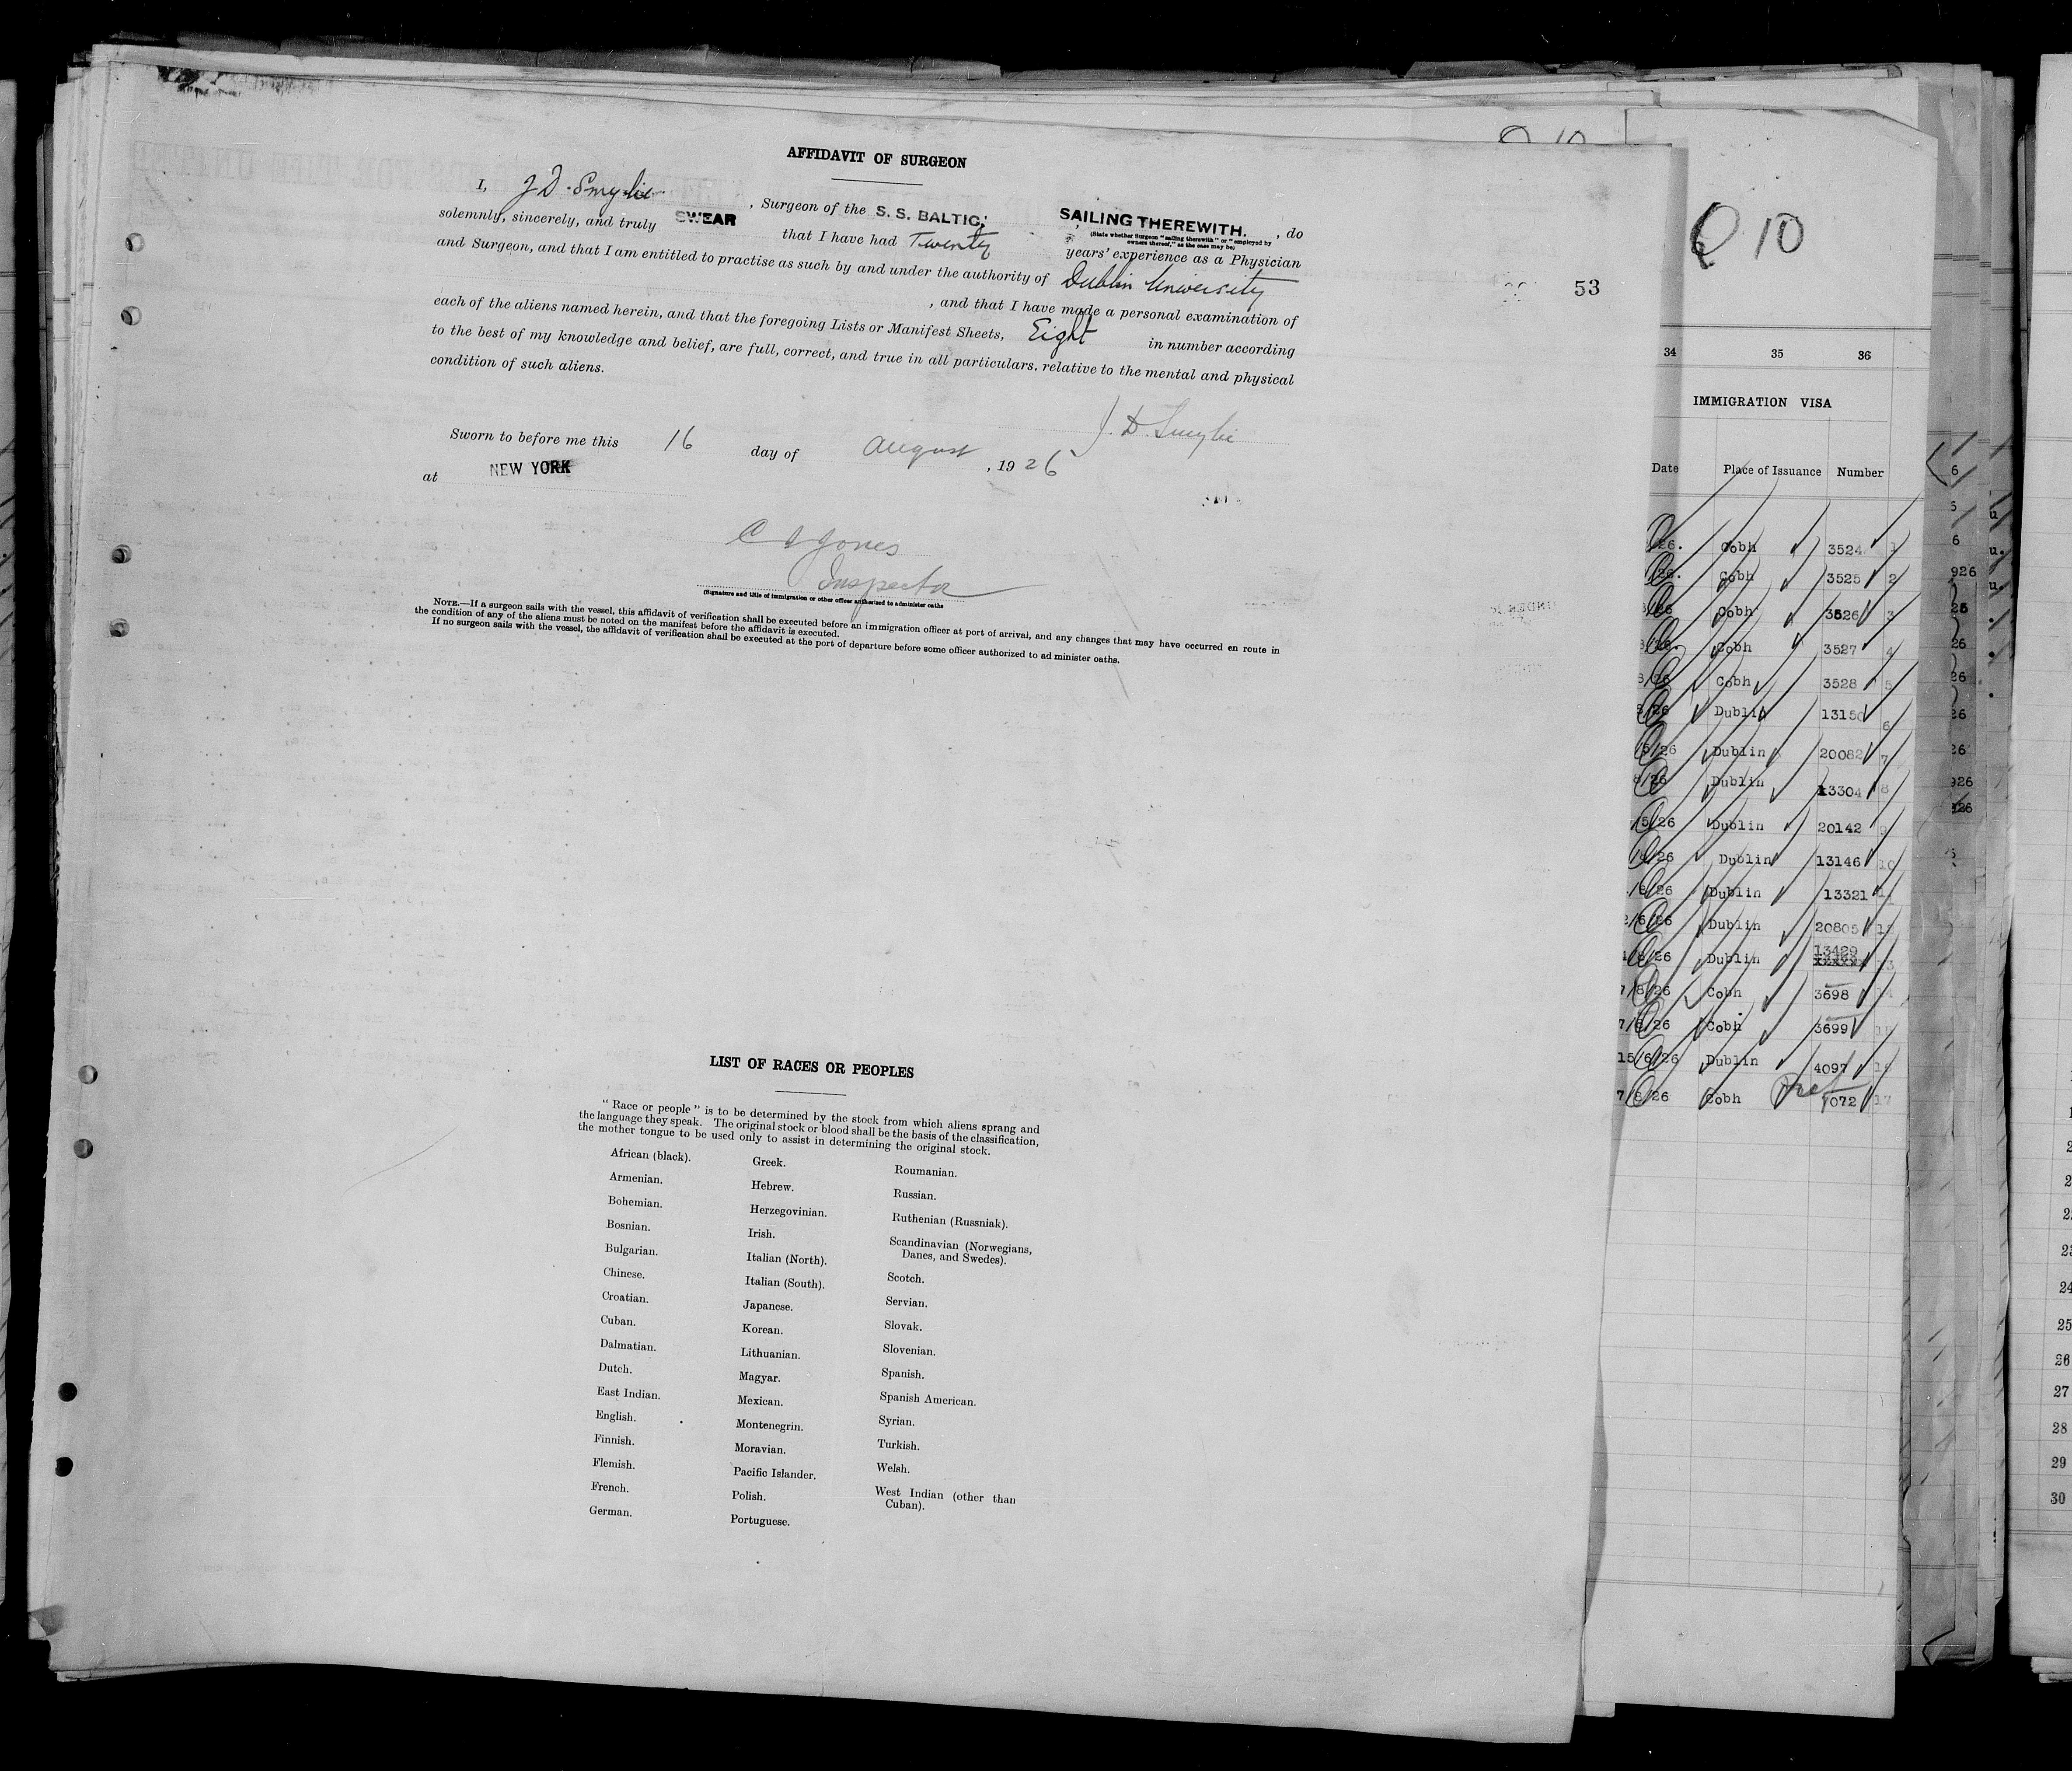 AFFIDAVIT OF SURGEON
I, J D. Smylie, Surgeon of the S. S. BALTIC, SAILING THEREWITH. , do
(State whether Surgeon "sailing therewith" or "employed by
owners thereof," as the case may be)
solemnly, sincerely, and truly SWEAR that I have had Twenty years' experience as a Physician
and Surgeon, and that I am entitled to practise as such by and under the authority of Dublin University
, and that I have made a personal examination of
each of the aliens named herein, and that the foregoing Lists or Manifest Sheets, Eight in number according
to the best of my knowledge and belief, are full, correct, and true in all particulars, relative to the mental and physical
condition of such aliens.
J. D. Smylie
Sworn to before me this 16 day of August , 1926
at NEW YORK
C J Jones
Inspector
(Signature and title of immigration or other officer authorized to administer oaths
NOTE.—If a surgeon sails with the vessel, this affidavit of verification shall be executed before an immigration officer at port of arrival, and any changes that may have occurred en route in
the condition of any of the aliens must be noted on the manifest before the affidavit is executed.
If no surgeon sails with the vessel, the affidavit of verification shall be executed at the port of departure before some officer authorized to ad minister oaths.
53
LIST OF RACES OR PEOPLES
"Race or people" is to be determined by the stock from which aliens sprang and
the language they speak. The original stock or blood shall be the basis of the classification,
the mother tongue to be used only to assist in determining the original stock.
African (black).
Armenian.
Bohemian.
Bosnian.
Bulgarian.
Chinese.
Croatian.
Cuban.
Dalmatian.
Dutch.
East Indian.
English.
Finnish.
Flemish.
French.
German.
Greek.
Hebrew.
Herzegovinian.
Irish.
Italian (North).
Italian (South).
Japanese.
Korean.
Lithuanian.
Magyar.
Mexican.
Montenegrin.
Moravian.
Pacific Islander.
Polish.
Portuguese.
Roumanian.
Russian.
Ruthenian (Russniak).
Scandinavian (Norwegians,
Danes, and Swedes).
Scotch.
Servian.
Slovak.
Slovenian.
Spanish.
Spanish American.
Syrian.
Turkish.
Welsh.
West Indian (other than
Cuban).
10
34 35 36
IMMIGRATION VISA
Date Place of Issuance Number
26. Cobh 3524 1
26. Cobh 3525 2
26 Cobh 3526 3
Cobh 3527 4
Cobh 3528 5
26 Dublin 13150 6
5/26 Dublin 20082 7
26 Dublin 13304 8
5/26 Dublin 20142 9
26 Dublin 13146 10
26 Dublin 13321
/6/26 Dublin 20805
26 Dublin 13429
7/8/26 Cobh 3698
7/8/26 Cobh 3699
15/6/26 Dublin 4097
7/8/26 Cobh 7072 17
24
25
26
27
28
29
30